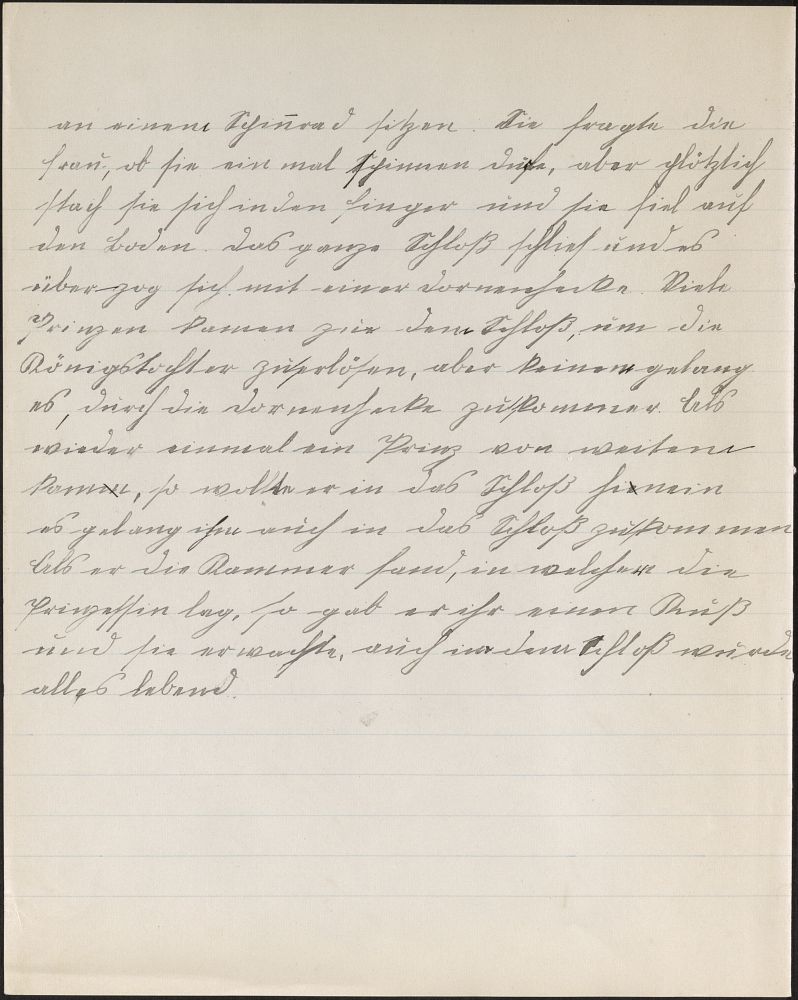 an einem Spinnrad sitzen. Sie fragte die
Frau, ob sie ein mal spinnen dürfe, aber plötzlich
stach sie sich in den Finger und sie fiel auf
den Boden. Das ganze Schloß schlief und es
überzog sich mit einer Dornenhecke. Viele
Prinzen kamen zu dem Schloß, um die
Königstochter zu erlösen, aber keinem gelang
es, durch die Dornenhecke zu kommen. Als
wieder einmal ein Prinz von weitem
kam, so wollte er in das Schloß hinein
es gelang ihm auch in das Schloß zu kommen
Als er die Kammer fand, in welcher die
Prinzessin lag, so gab er ihr einen Kuß
und sie erwachte, auch in dem Schloß wurde
alles lebend.